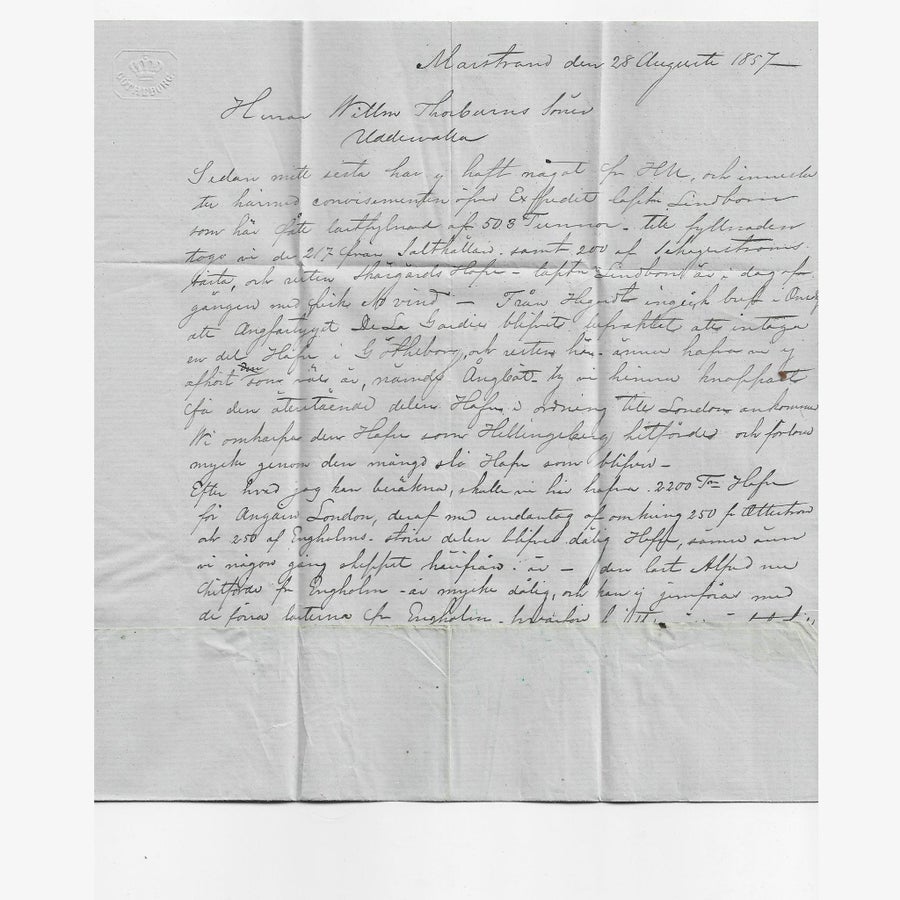 GÖTHEBORG
Marstrand den 28 Augusti 1857
Herrar Willm Thorburns Söner
Uddewalla
Sedan mitt sista har ej haft något fr HH, och innesluter
härmed connisementen öfver Expedit Capt Lindbom
som här fått lastfyllnad af 503 Tunnor - till fyllnaden
togo vi de 217 från Saltkällan, samt 200 af
och resten Skärgårds Hafre - Capt Lindbom är i dag af
gången med frisk NO vind - Från ingick bref i
att Ångfartyget De La Gardie blifvit befraktet att intaga
en del Hafre i Götheborg, och resten här - ännu hafva vi ej
afhört den som väl är, nämde Ångbåt - ty vi hinna knappast
få den återstående delen Hafre i ordning till London ankommer
Wi omharpa den Hafre som Hellingeberg hitförde och förlora
mycke genom den mängd slö Hafre som blifver -
Efter hvad jag kan beräkna, skulle vi här hafva 2200 Tnr Hafre
för Ångaren London, deraf med undantag af omkring 250 fr
och 250 af Engholms - större delen blifver dålig Hafre, sämre än
vi någon gång skeppat härifrån: är - den last Alfred nu
hitförde fr Engholm - är mycke dålig, och kan ej jemföras med
de förra lasterna fr Engholm - hvarför